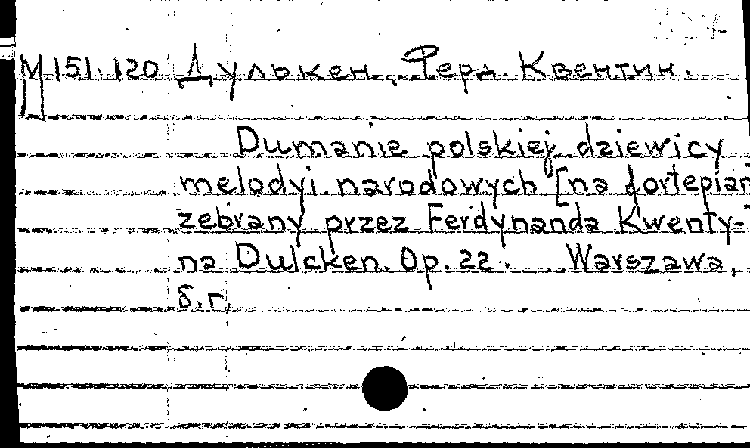 М 151.120 Дулькен, Ферд. Квентин.
Dumanie polskiej dziewicy
melodyi narodowych [na fortepian
zebrany przez Ferdynanda Kwenty-
na Dulcken. Op. 22. Warszawa,
б.г.